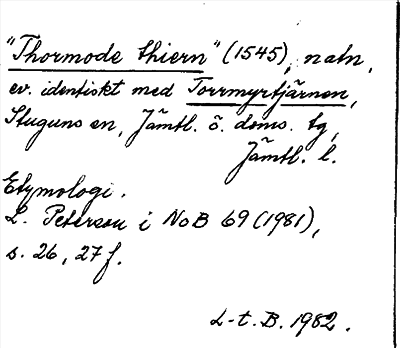 "Thormode thiern" (1545), natn,
ev. identiskt med Torrmyrtjärnen,
Stuguns sn, Jämtl. ö. doms. tg,
Jämtl. l.
Etymologi.
L. Peterson i NoB 69 (1981),
s. 26, 27 f.
L-t. B. 1982.